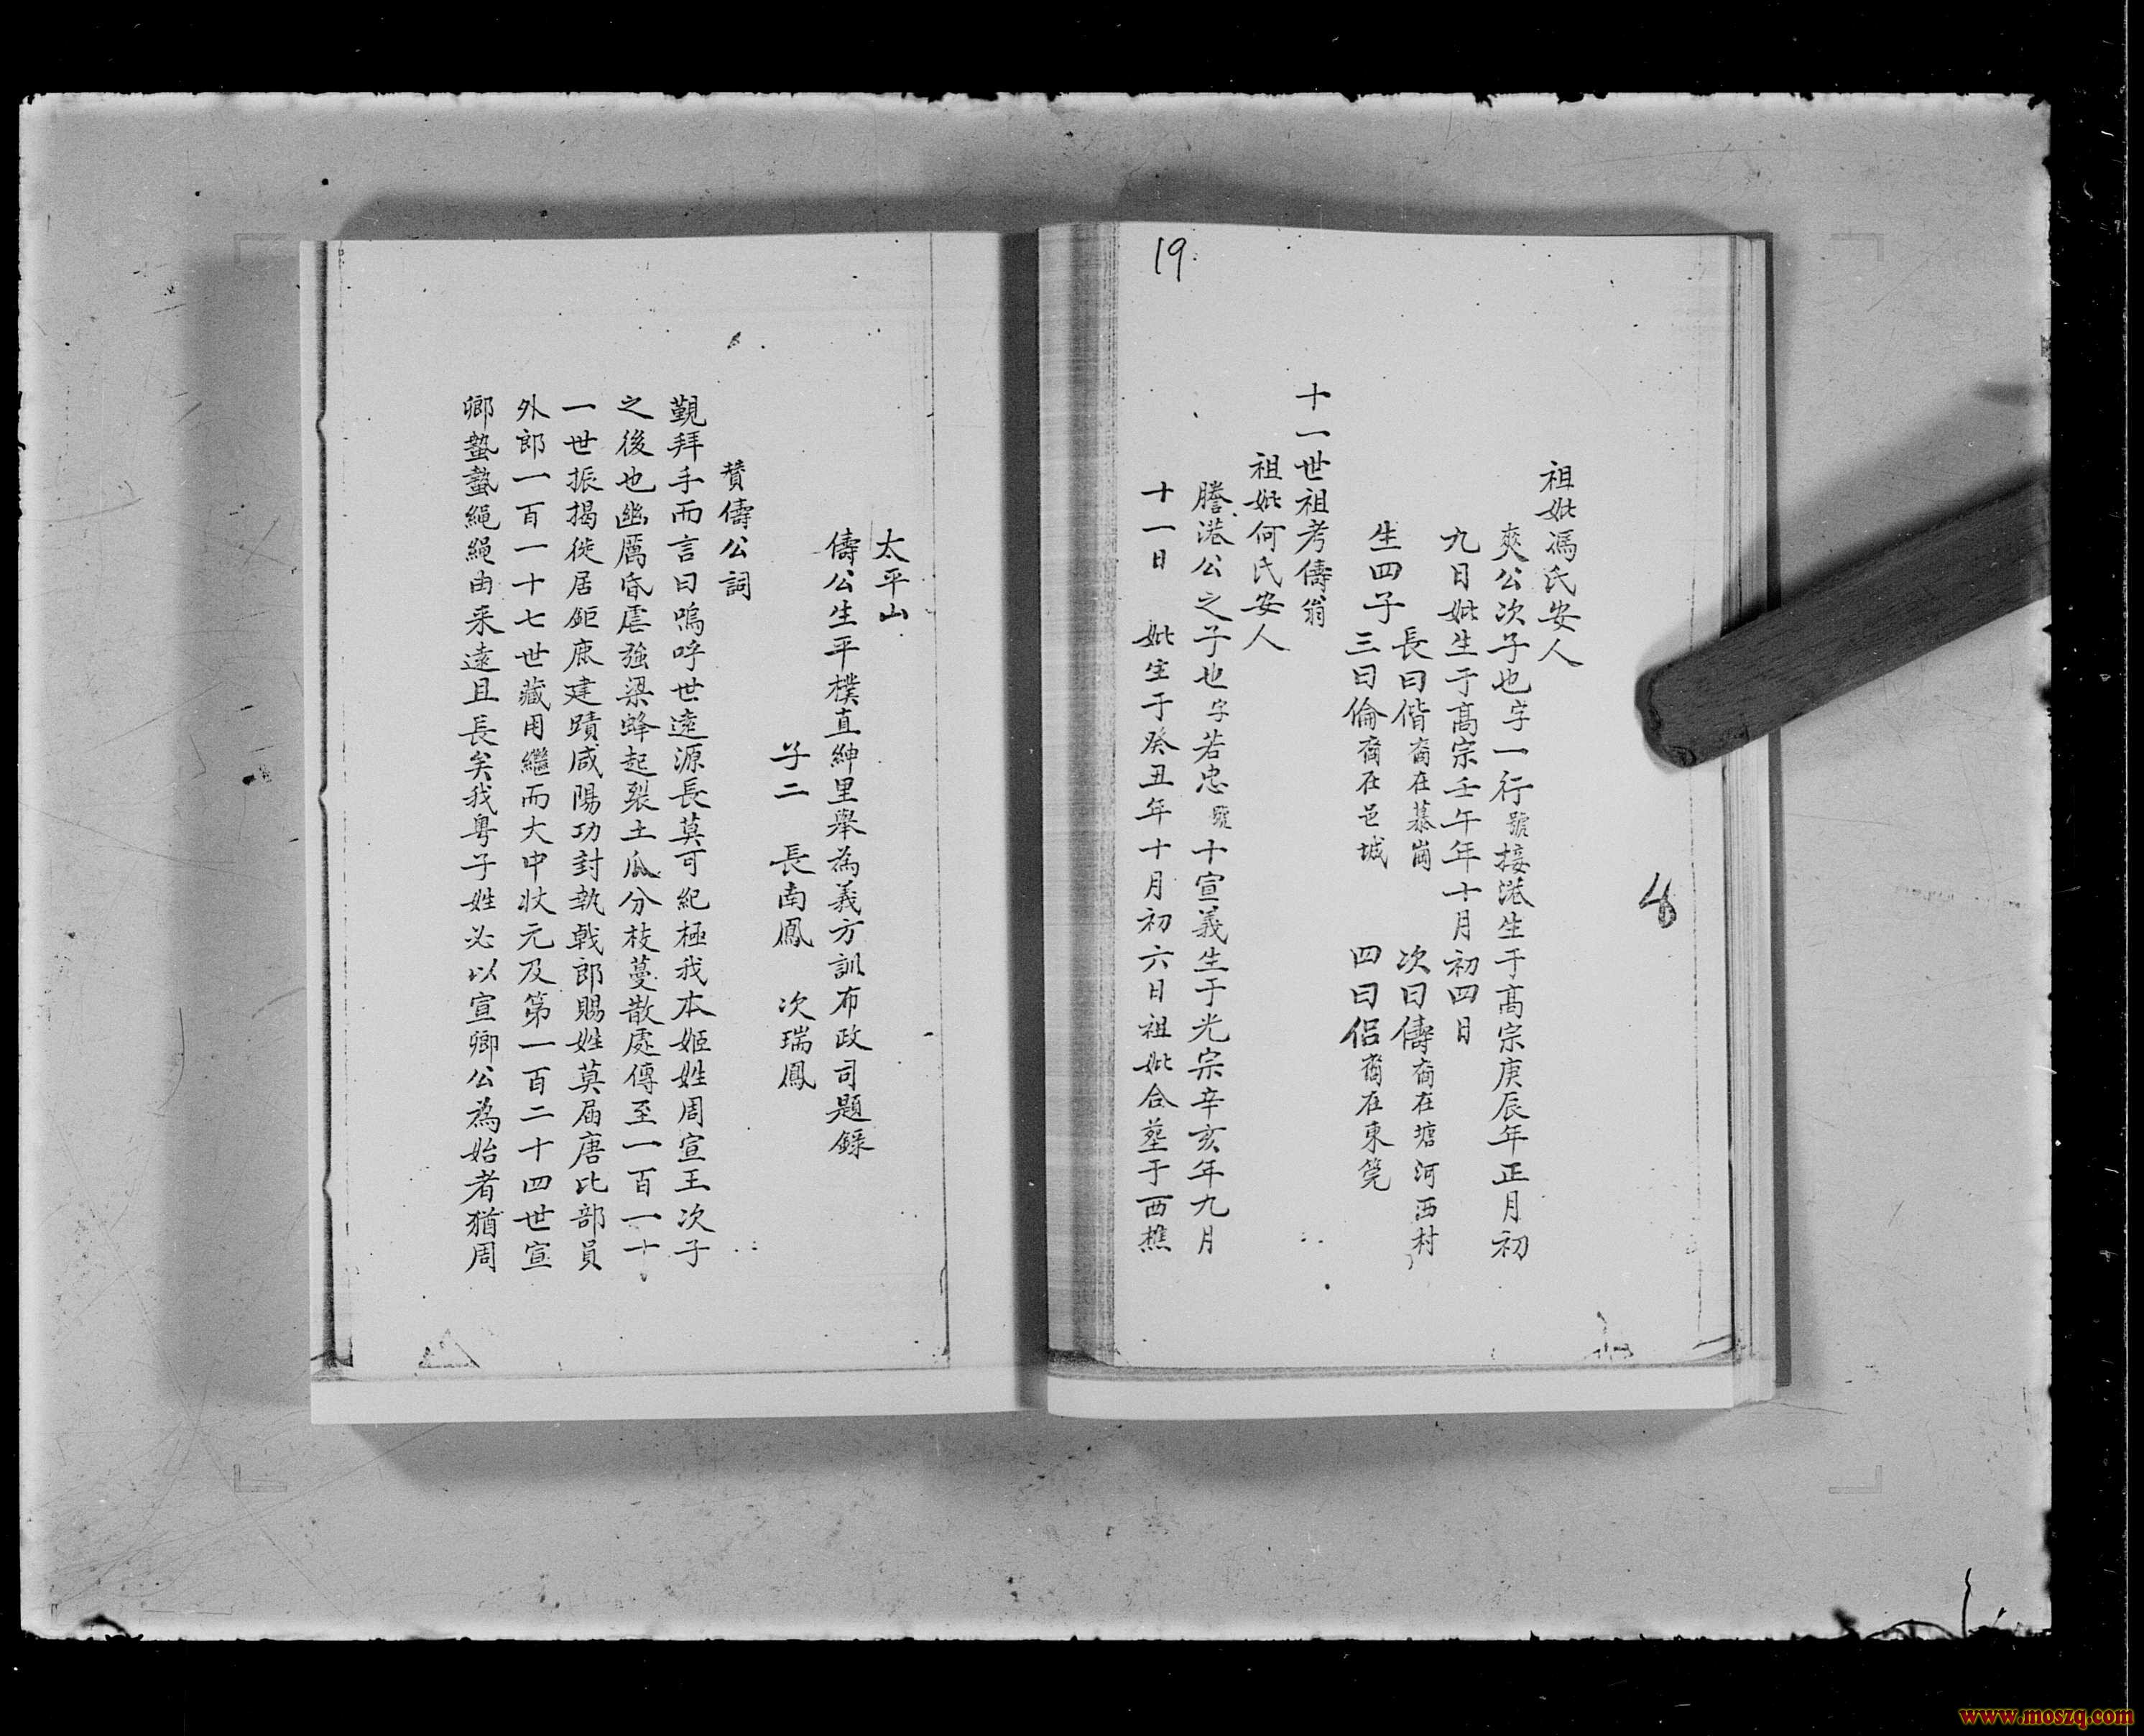 19.
8
祖妣馮氏安人
爽公次子也字一行號接港生于高宗庚辰年正月初
九日妣生于高宗壬午年十月初四日
生四子
長曰偕裔在慕崗　次曰儔裔在塘河西村
三曰倫裔在邑城　四曰侶裔在東筦
十一世祖考儔翁
祖妣何氏安人
騰港公之子也字若忠號十宣義生于光宗辛亥年九月
十一日　妣生于癸丑年十月初六日祖妣合塟于西樵
太平山
儔公生平樸直紳里舉為義方訓布政司題錄
子二　長南鳳　次瑞鳳
賛儔公詞
覲拜手而言曰嗚呼世遠源長莫可紀極我本姬姓周宣王次子
之後也幽厲昏虐強梁蜂起裂土瓜分枝蔓散處傳至一百一十
一世振揭徙居鉅鹿建蹟咸陽功封執戟郎賜姓莫屆唐比部員
外郎一百一十七世藏用繼而大中狀元及第一百二十四世宣
卿蟄蟄繩繩由来遠且長矣我粤子姓必以宣卿公為始者猶周
www.moszq.com